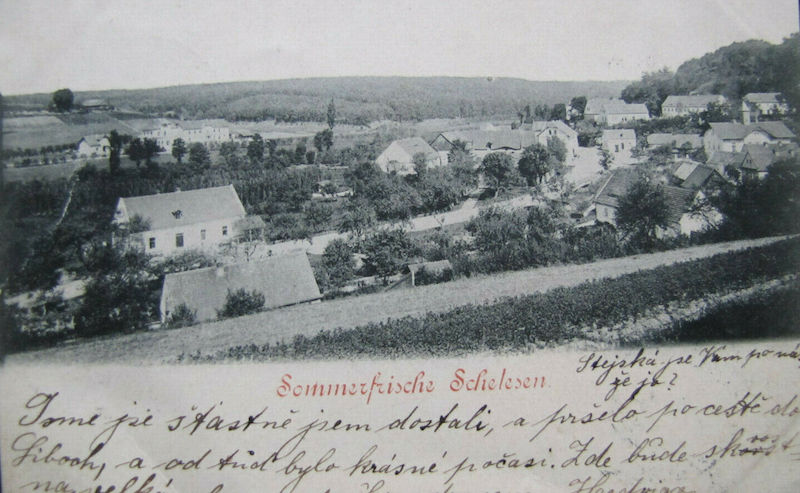 Sommerfrische Schelesen.
Stejská je Vám po nás
že jo?
Tsme jse šťastně jsem dostali, a pršelo po cestě do
Liboch, a od tud bylo krásné počasi. Zde bude
na velký